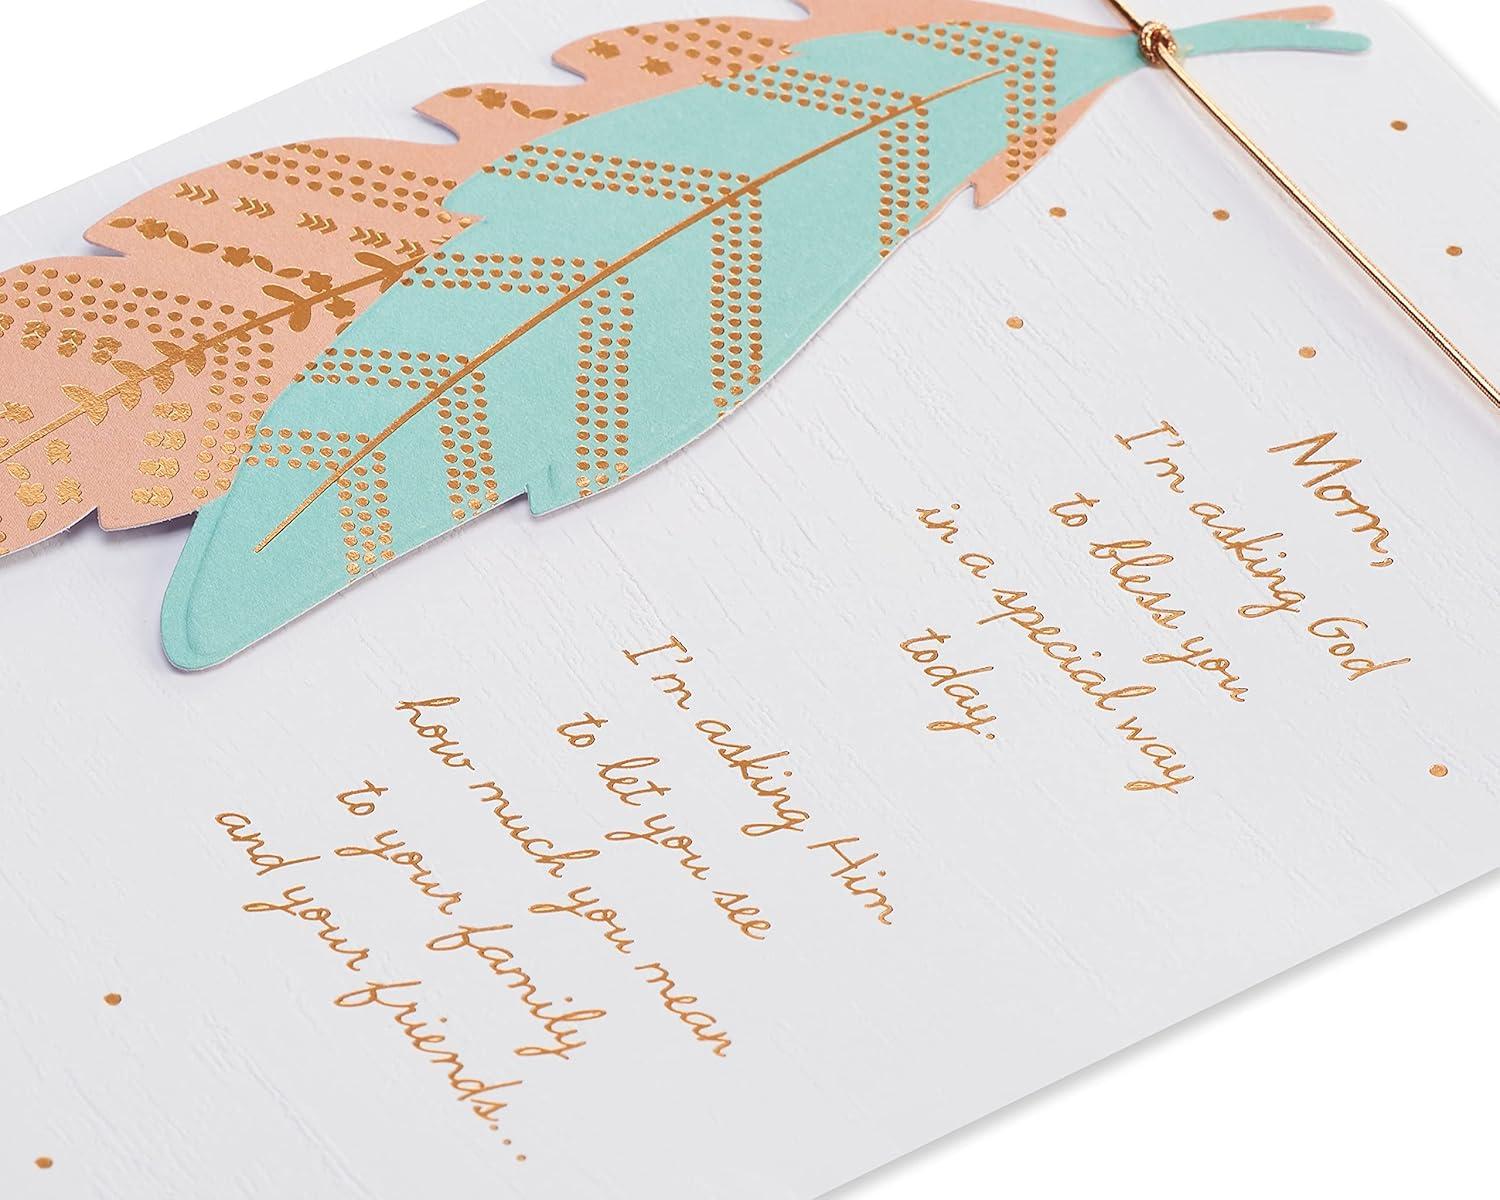 Mom,
I'm asking God
to bless you
in a special way
today.
I'm asking Him
to let you see
how much you mean
to your family
and your friends...